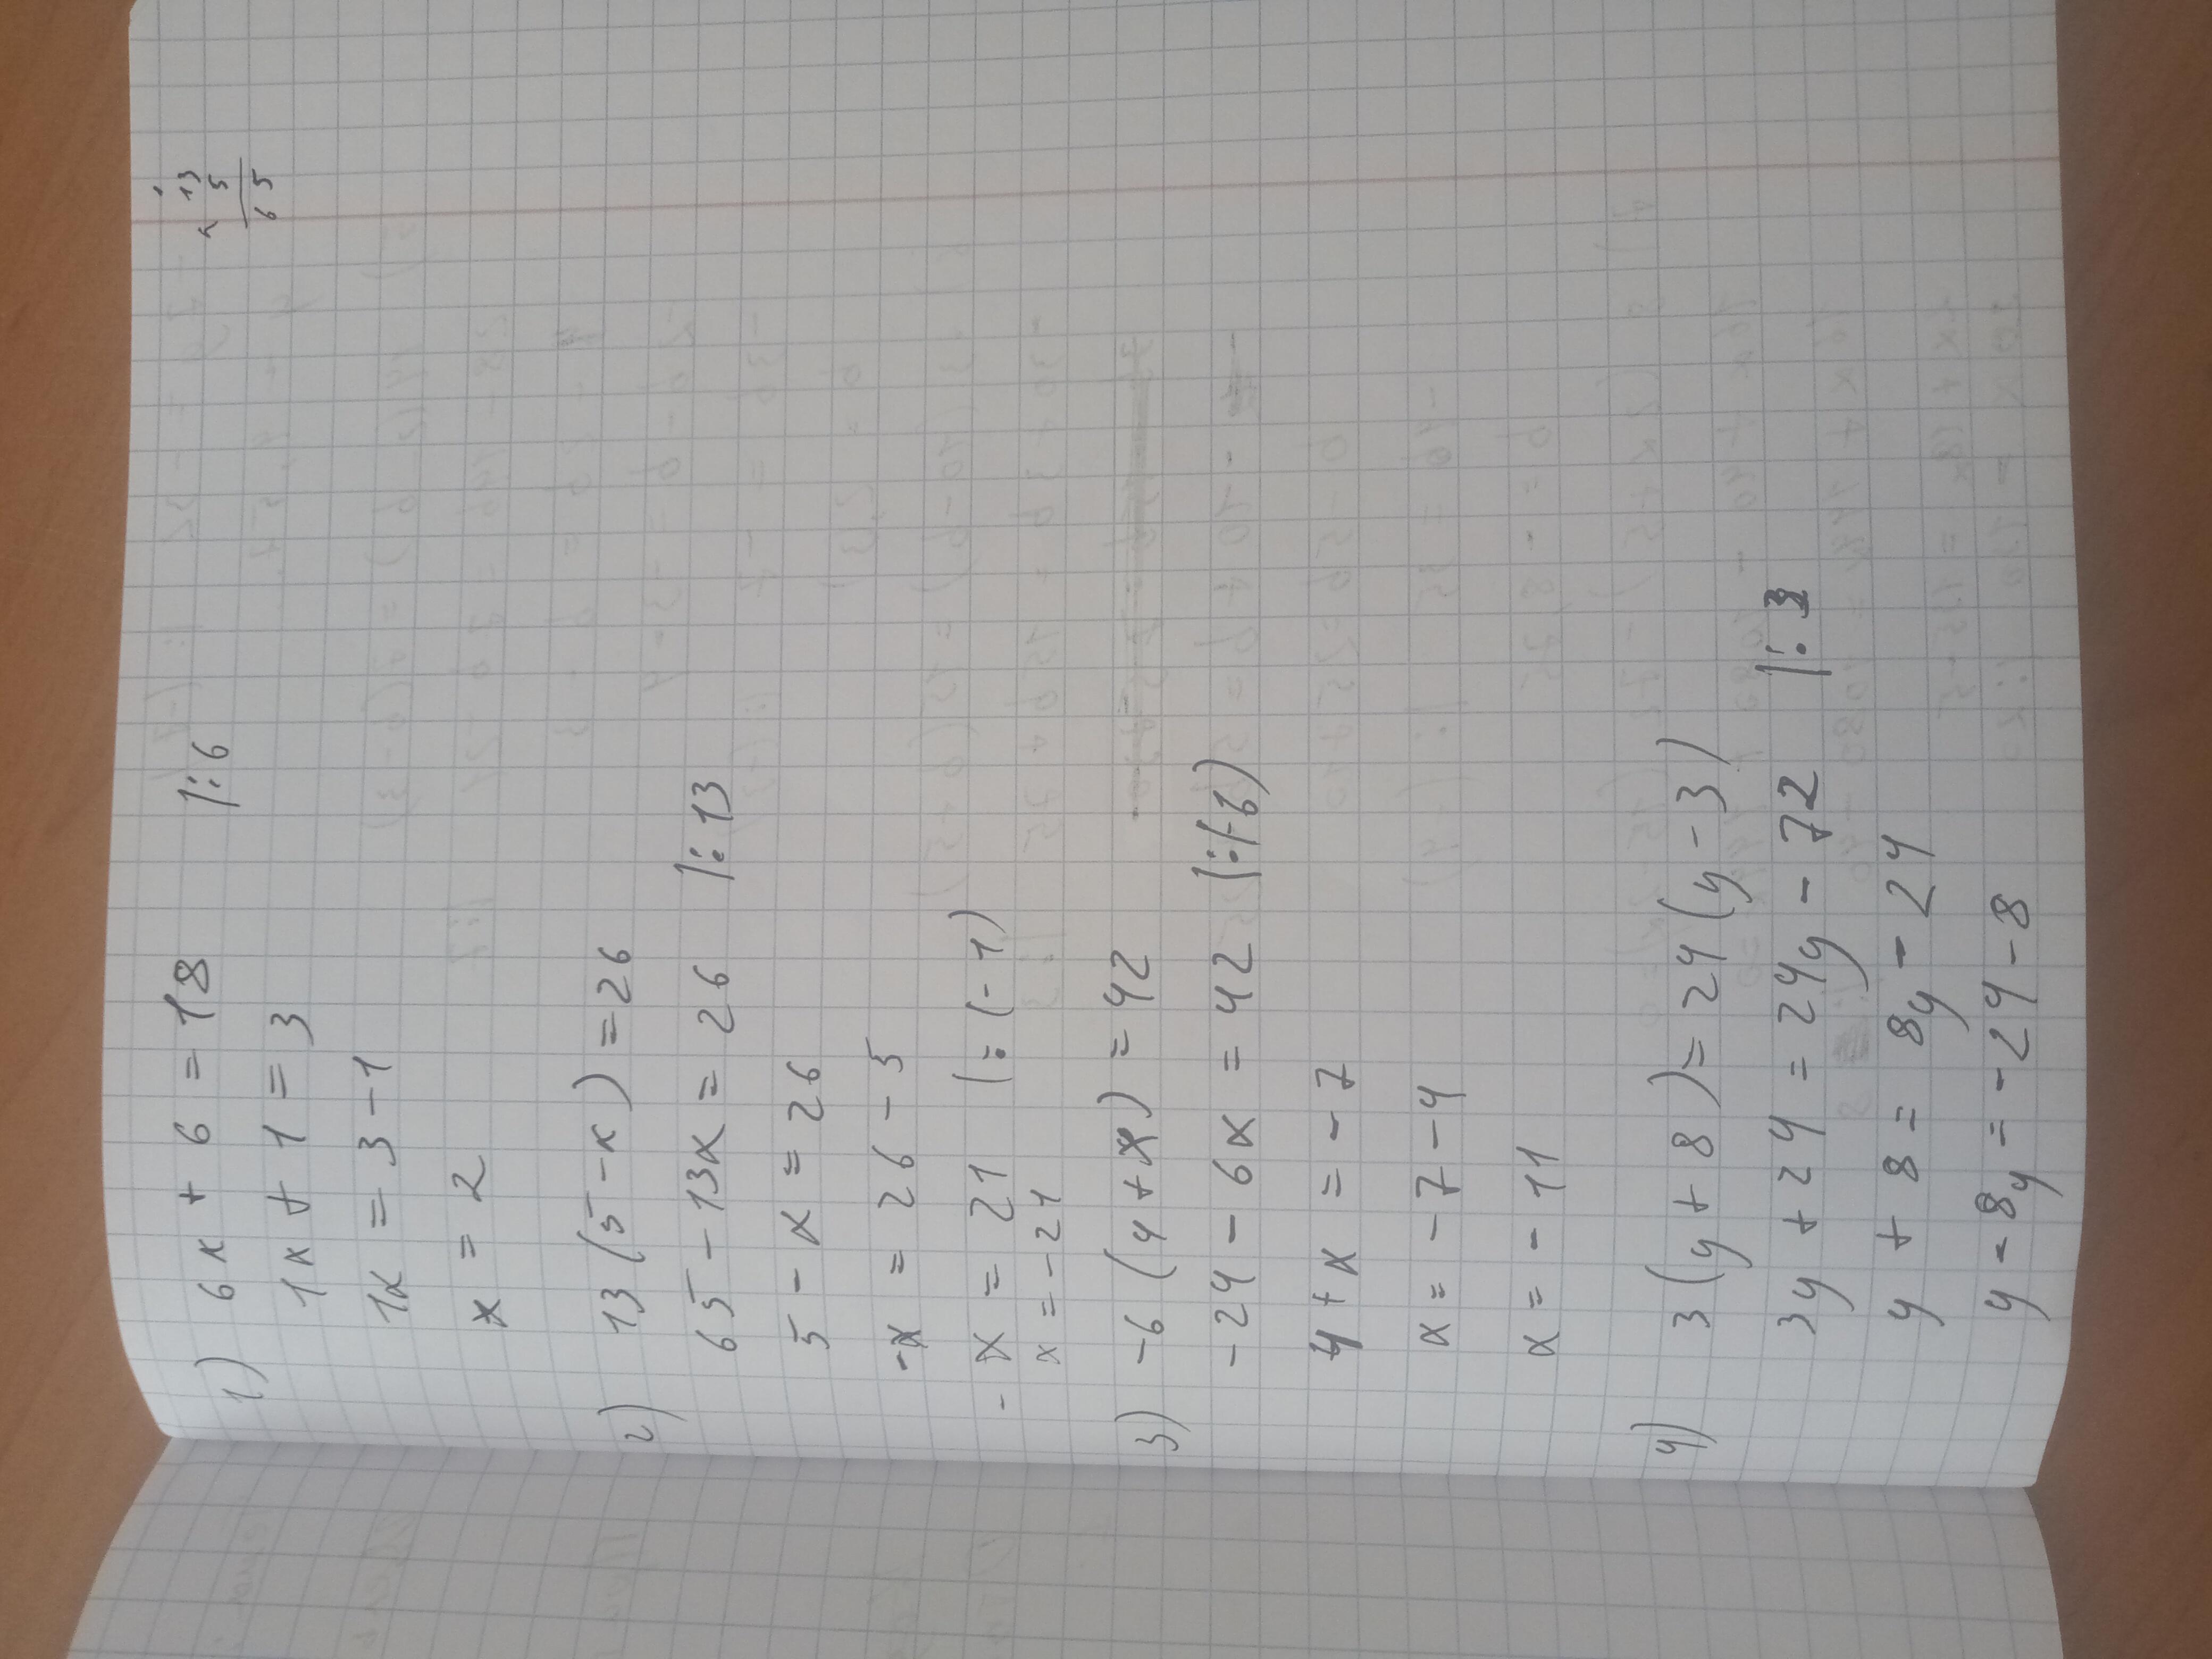 1) 6x + 6 = 18 |:6
1x + 1 = 3
1x = 3 - 1
x = 2
2) 13 (5 - x) = 26
65 - 13x = 26 |:13
5 - x = 26
-x = 26 - 5
- x = 21 |:(-1)
x = -21
3) -6 (4 + x) = 42
-24 - 6x = 42 |:(-6)
4 + x = -7
x = -7 - 4
x = -11
4) 3 (y + 8) = 24 (y - 3)
3y + 24 = 24y - 72 |:3
y + 8 = 8y - 24
y - 8y = -24 - 8
13
5
65